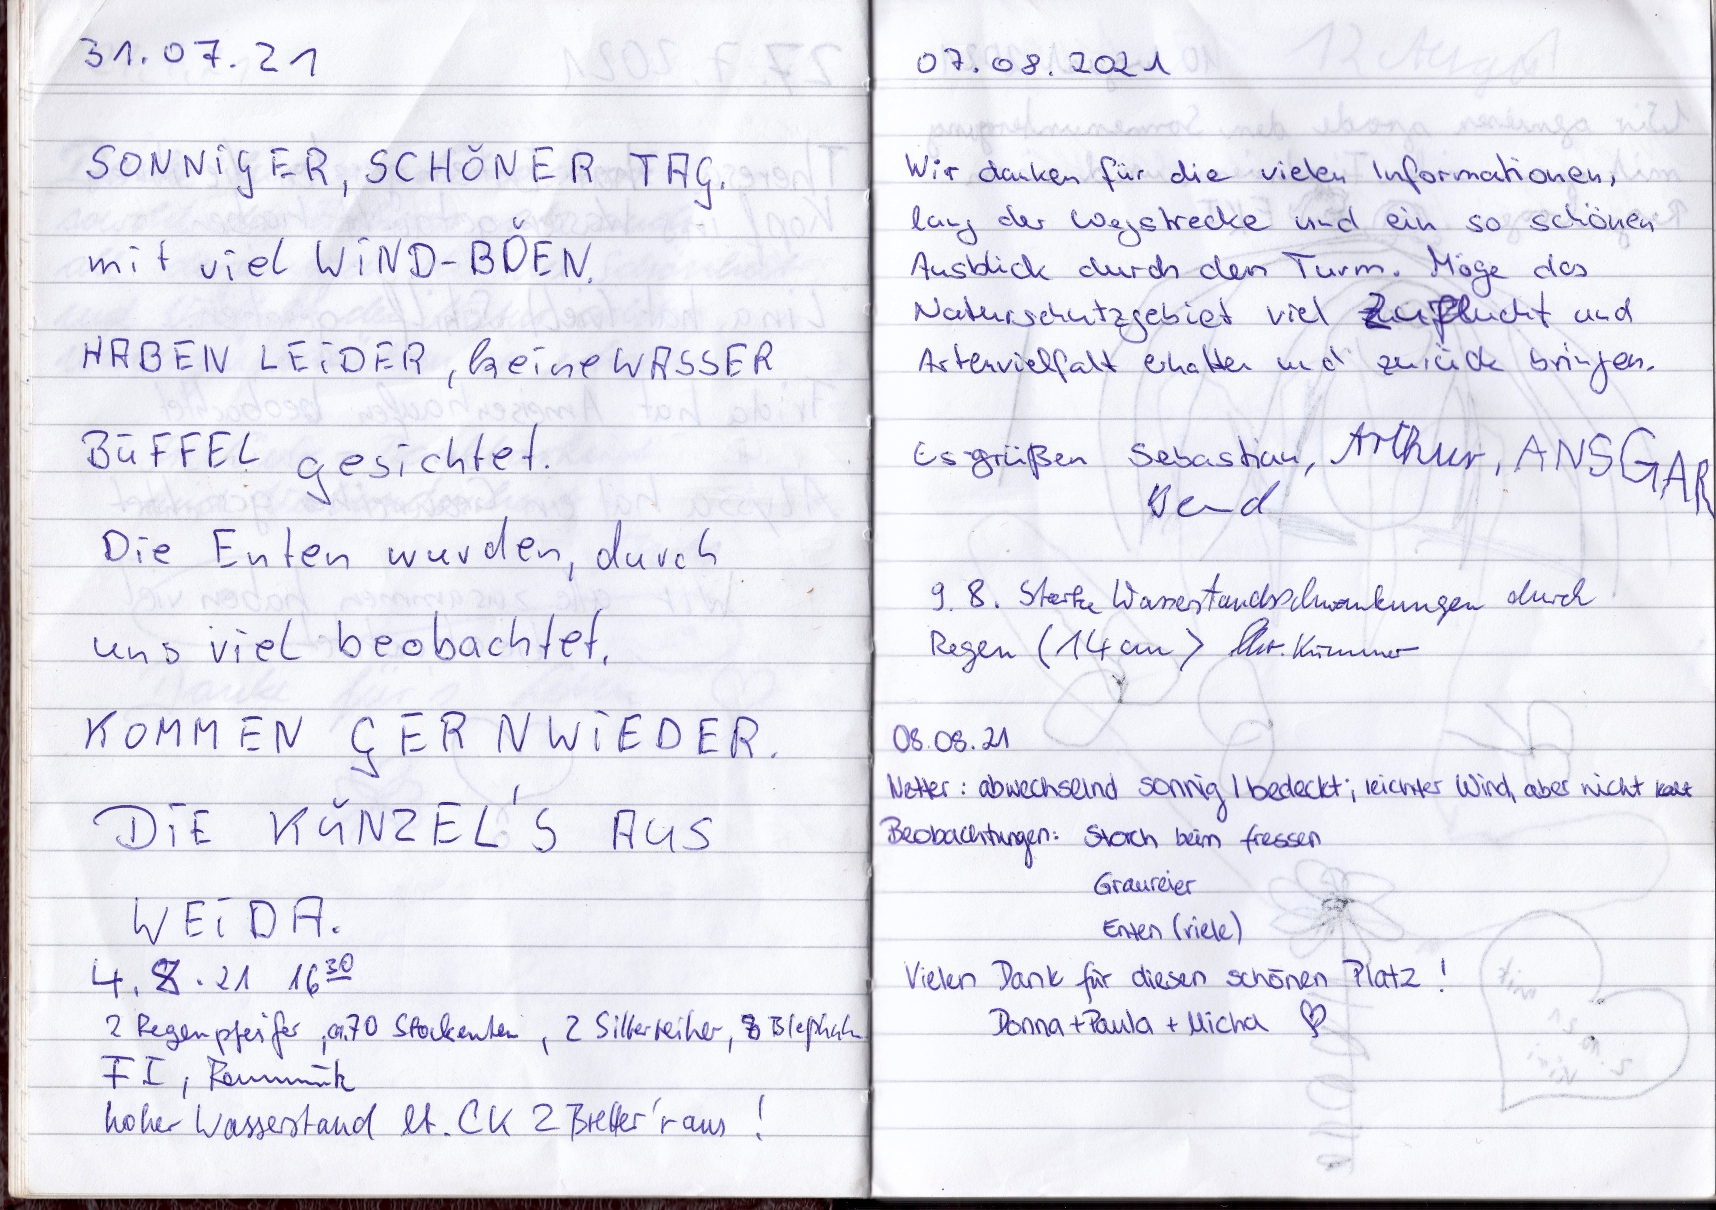 31.07.21
SONNiGER, SCHÖNER TAG.
mit viel WiND-BÖEN.
HABEN LEiDER, keine WASSER
BüFFEL gesichtet.
Die Enten wurden, durch
uns viel beobachtet.
KOMMEN GERNWiEDER.
DiE KÜNZEL'S AUS
WEiDA.
4. 8. 21 16³⁰
2 Regenpfeifer, ca. 70 Stockenten, 2 Silberreiher, 8
FI,
hoher Wasserstand lt. CK 2 Bretter 'raus!
07.08.2021
Wir danken für die vielen Informationen,
lang der Wegstrecke und ein so schönen
Ausblick durch den Turm. Möge das
Naturschutzgebiet viel Zuflucht und
Artenvielfalt erhalten und zurück bringen.
Es grüßen Sebastian, Arthur, ANSGAR
Bernd
9. 8. Starke Wasserstandsschwankungen durch
Regen (14 cm)
08.08.21
Wetter: abwechselnd sonnig / bedeckt; leichter Wind, aber nicht kalt
Beobachtungen: Storch beim fressen
Graureier
Enten (viele)
Vielen Dank für diesen schönen Platz!
Donna + Paula + Micha ♡